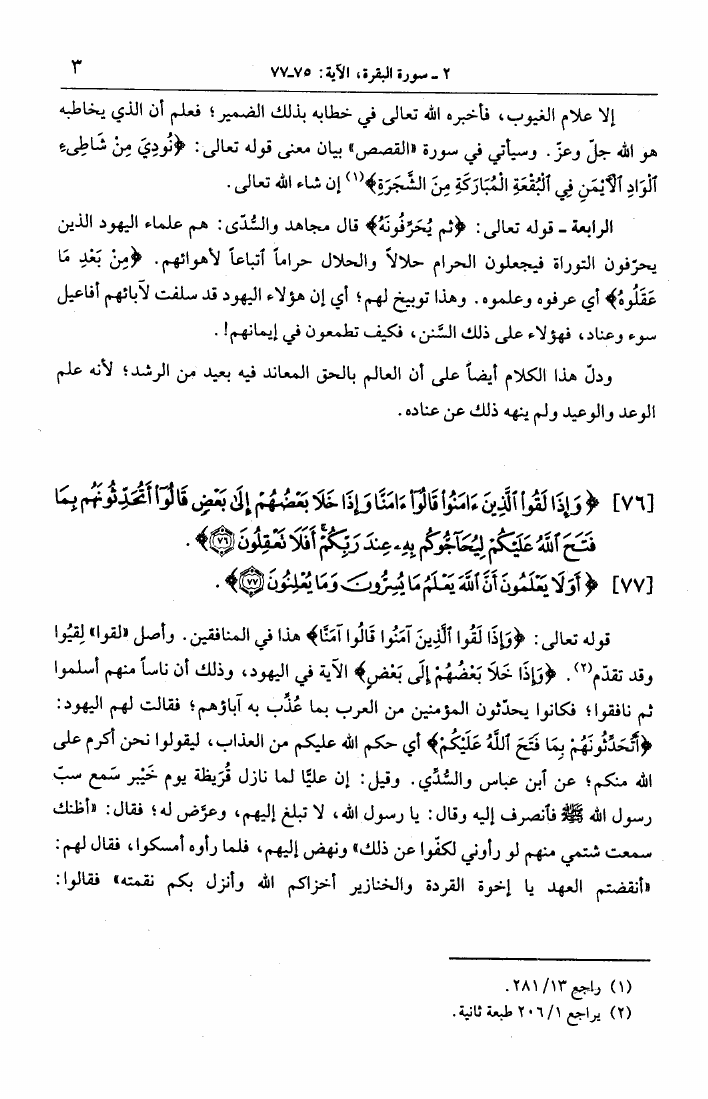 ٢ - سورة البقرة، الآية: ٧٥-٧٧
٣
إلا علام الغيوب، فأخبره الله تعالى في خطابه بذلك الضمير؛ فعلم أن الذي يخاطبه
هو الله جلّ وعزّ. وسيأتي في سورة «القصص» بيان معنى قوله تعالى: ﴿نُودِيَ مِنْ شَاطِىءِ
ٱلْوَادِ ٱلأَيْمَنِ فِي ٱلْبُقْعَةِ ٱلْمُبَارَكَةِ مِنَ الشَّجَرَةِ﴾(١) إن شاء الله تعالى.
الرابعة - قوله تعالى: ﴿ثم يُحَرِّفُونَهُ﴾ قال مجاهد والسُّدّى: هم علماء اليهود الذين
يحرّفون التوراة فيجعلون الحرام حلالاً والحلال حراماً ٱتباعاً لأهوائهم. ﴿مِنْ بَعْدِ مَا
عَقَلُوهُ﴾ أي عرفوه وعلموه. وهذا توبيخ لهم؛ أي إن هؤلاء اليهود قد سلفت لآبائهم أفاعيل
سوء وعناد، فهؤلاء على ذلك السَّنن، فكيف تطمعون في إيمانهم!.
ودلّ هذا الكلام أيضاً على أن العالم بالحق المعاند فيه بعيد من الرشد؛ لأنه علم
الوعد والوعيد ولم ينهه ذلك عن عناده.
[٧٦] ﴿وَإِذَا لَقُوا۟ ٱلَّذِينَ ءَامَنُوا۟ قَالُوٓا۟ ءَامَنَّا وَإِذَا خَلَا بَعْضُهُمْ إِلَىٰ بَعْضٍ قَالُوٓا۟ أَتُحَدِّثُونَهُم بِمَا
فَتَحَ ٱللَّهُ عَلَيْكُمْ لِيُحَآجُّوكُم بِهِۦ عِندَ رَبِّكُمْ ۚ أَفَلَا تَعْقِلُونَ ٧٦﴾.
[٧٧] ﴿أَوَلَا يَعْلَمُونَ أَنَّ ٱللَّهَ يَعْلَمُ مَا يُسِرُّونَ وَمَا يُعْلِنُونَ ٧٧﴾.
قوله تعالى: ﴿وَإِذَا لَقُوا الَّذِينَ آمَنُوا قَالُوا آمَنَّا﴾ هذا في المنافقين. وأصل «لقوا» لقِيُوا
وقد تقدّم(٢). ﴿وَإِذَا خَلاَ بَعْضُهُمْ إِلَى بَعْضٍ﴾ الآية في اليهود، وذلك أن ناساً منهم أسلموا
ثم نافقوا؛ فكانوا يحدّثون المؤمنين من العرب بما عُذِّب به آباؤهم؛ فقالت لهم اليهود:
﴿أَتُحَدِّثُونَهُمْ بِمَا فَتَحَ ٱللَّهُ عَلَيْكُمْ﴾ أي حكم الله عليكم من العذاب، ليقولوا نحن أكرم على
الله منكم؛ عن ٱبن عباس والسُّدِّي. وقيل: إن عليًّا لما نازل قُرَيظة يوم خَيْبر سَمع سبّ
رسول الله ﷺ فٱنصرف إليه وقال: يا رسول الله، لا تبلغ إليهم، وعرَّض له؛ فقال: «أظنك
سمعت شتمي منهم لو رأوني لكفّوا عن ذلك» ونهض إليهم، فلما رأوه أمسكوا، فقال لهم:
«أنقضتم العهد يا إخوة القردة والخنازير أخزاكم الله وأنزل بكم نقمته» فقالوا:
(١) راجع ١٣/ ٢٨١.
(٢) يراجع ١/ ٢٠٦ طبعة ثانية.